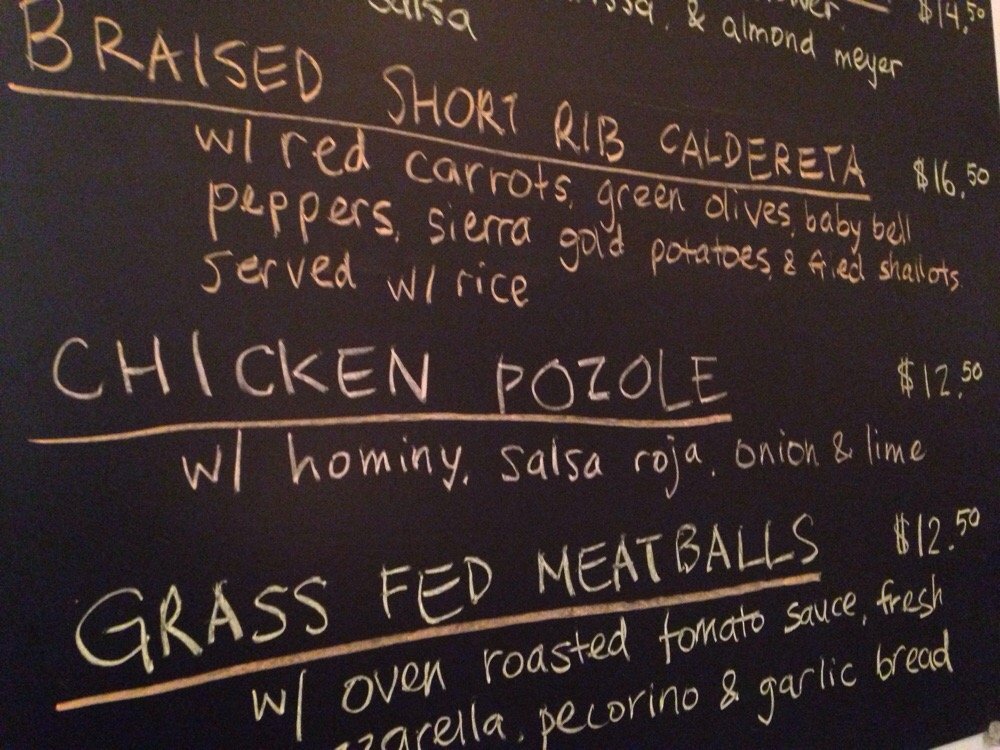 salsa
& almond meyer
$14.50
BRAISED SHORT RIB CALDERETA $16.50
w/ red carrots, green olives, baby bell
peppers, sierra gold potatoes, & fried shallots
served w/ rice
CHICKEN POZOLE $12.50
w/ hominy, salsa roja, onion & lime
GRASS FED MEATBALLS $12.50
w/ oven roasted tomato sauce, fresh
pecorino & garlic bread